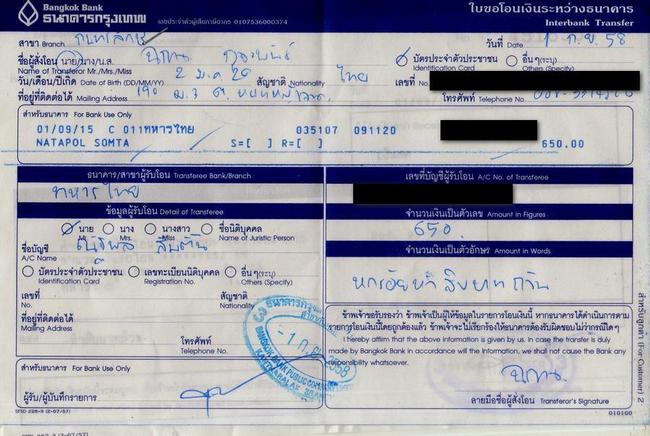 Bangkok Bank
ธนาคารกรุงเทพ
เลขประจำตัวผู้เสียภาษีอากร 0107536000374
ใบขอโอนเงินระหว่างธนาคาร
Interbank Transfer
สาขา Branch
วันที่ Date 1 ก.ย. 58
ชื่อผู้สั่งโอน นาย/นาง/น.ส.
Name of Transferor Mr./Mrs./Miss
บัตรประจำตัวประชาชน
Identification Card
อื่นๆ(ระบุ)
Others (Specify)
วัน/เดือน/ปีเกิด Date of Birth (DD/MM/YY) 2 ม.ค 20
สัญชาติ Nationality ไทย
เลขที่ No.
ที่อยู่ที่ติดต่อได้ Mailing Address
โทรศัพท์ Telephone No.
สำหรับธนาคาร For Bank Use Only
01/09/15 C 011ทหารไทย 035107 091120
NATAPOL SOMTA S=[ ] R=[ ] 650.00
ธนาคาร/สาขาผู้รับโอน Transferee Bank/Branch
ทหารไทย
เลขที่บัญชีผู้รับโอน A/C No. of Transferee
ข้อมูลผู้รับโอน Detail of Transferee
จำนวนเงินเป็นตัวเลข Amount in Figures
650
นาย Mr.
นาง Mrs.
นางสาว Miss
ชื่อนิติบุคคล
Name of Juristic Person
ชื่อบัญชี
A/C Name
จำนวนเงินเป็นตัวอักษร Amount in Words
หกร้อยห้าสิบบาทถ้วน
บัตรประจำตัวประชาชน
Identification Card
เลขทะเบียนนิติบุคคล
Registration No.
อื่นๆ(ระบุ)
Others (Specify)
เลขที่
No.
สัญชาติ
Nationality
ที่อยู่ที่ติดต่อได้
Mailing Address
โทรศัพท์
Telephone No.
ข้าพเจ้าขอรับรองว่า ข้าพเจ้าเป็นผู้ให้ข้อมูลในรายการโอนเงินนี้ หากธนาคารได้ดำเนินการตาม
รายการโอนเงินนี้โดยถูกต้องแล้ว ข้าพเจ้าจะไม่เรียกร้องให้ธนาคารต้องรับผิดชอบไม่ว่ากรณีใดๆ
I hereby affirm that the above information is given by us. In case the transfer is duly
made by Bangkok Bank in accordance will the Information, we shall not cause the Bank any
responsibility whatsoever.
สำหรับธนาคาร
For Bank Use Only
ผู้รับ/ผู้บันทึกรายการ
ลายมือชื่อผู้สั่งโอน Transferor's Signature
010100
สำหรับลูกค้า (For Customer) 2